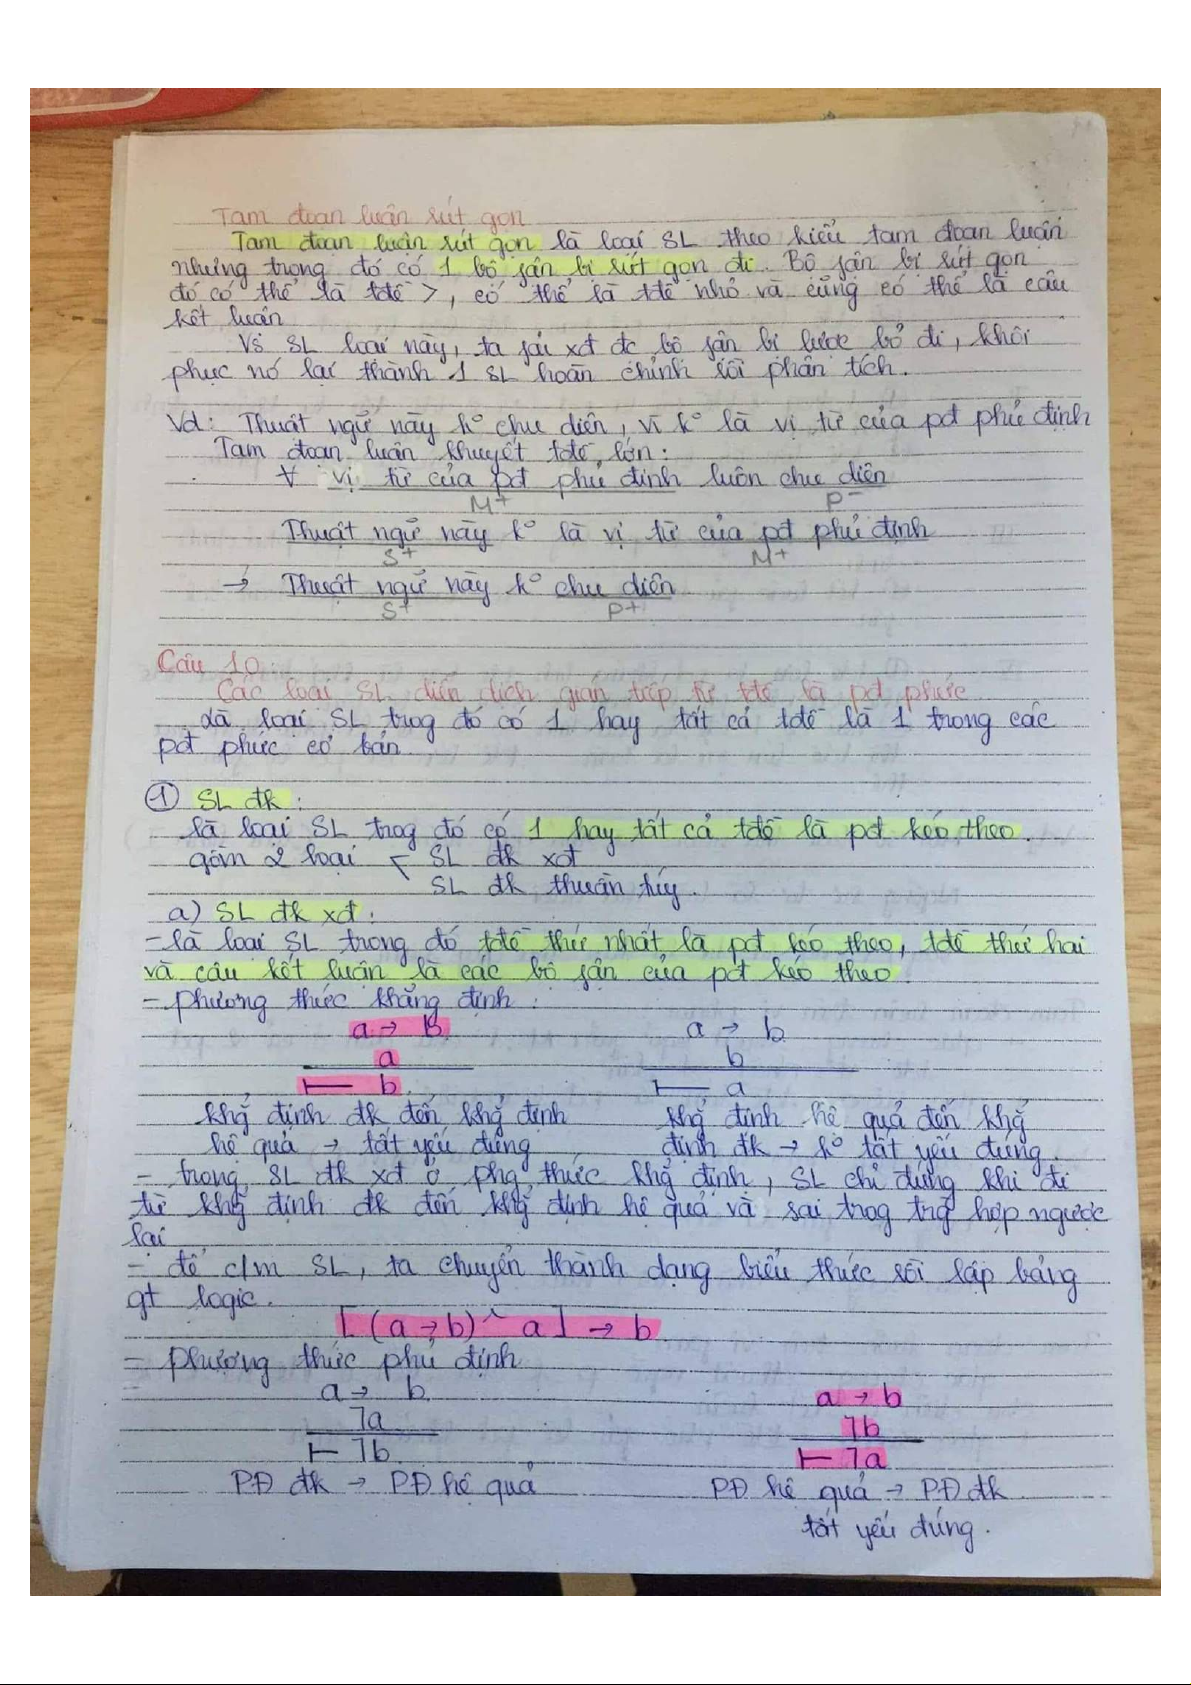 Tam đoạn luận rút gọn
Tam đoạn luận rút gọn là loại SL theo kiểu tam đoạn luận
nhưng trong đó có 1 bộ fận bị rút gọn đi. Bộ fận bị rút gọn
đó có thể là tđề >, có thể là tđề nhỏ và cũng có thể là câu
kết luận
Vs SL loại này, ta fải xđ đc bộ fận bị lược bỏ đi, khôi
phục nó lại thành 1 SL hoàn chỉnh rồi phân tích.
Vd: Thuật ngữ này k° chu diên, vì k° là vị từ của pđ phủ định
Tam đoạn luận khuyết tđề lớn:
∀ vị từ của pđ phủ định luôn chu diên
M+ P-
Thuật ngữ này k° là vị từ của pđ phủ định
S+ M+
→ Thuật ngữ này k° chu diên
S+ P+
Câu 10:
Các loại SL diễn dịch gián tiếp từ tđề là pđ phức
Là loại SL trog đó có 1 hay tất cả tđề là 1 trong các
pđ phức cơ bản
① SL đk:
là loại SL trog đó có 1 hay tất cả tđề là pđ kéo theo.
gồm 2 loại < SL đk xđ
SL đk thuần túy.
a) SL đk xđ:
- là loại SL trong đó tđề thứ nhất là pđ kéo theo, tđề thứ hai
và câu kết luận là các bộ fận của pđ kéo theo.
- Phương thức khẳng định:
a → B a → b
a b
⊢ b. ⊢ a
khg̉ định đk đến khg̉ định khg̉ định hệ quả đến khg̉
hệ quả → tất yếu đúng định đk → k° tất yếu đúng.
- trong SL đk xđ ở phg thức khg̉ định, SL chỉ đúng khi đi
từ khg̉ định đk đến khg̉ định hệ quả và sai trog trg̀ hợp ngược
lại
- để c/m SL, ta chuyển thành dạng biểu thức rồi lập bảng
gt logic.
[(a → b) ^ a] → b
- Phương thức phủ định
a → b a → b
7a 7b
⊢ 7b. ⊢ 7a
PĐ đk → PĐ hệ quả PĐ hệ quả → PĐ đk
tất yếu đúng.